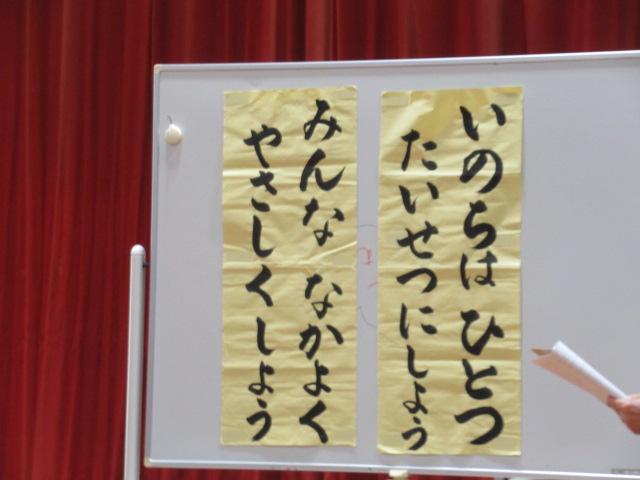 いのちは ひとつ
たいせつにしよう
みんな なかよく
やさしくしよう